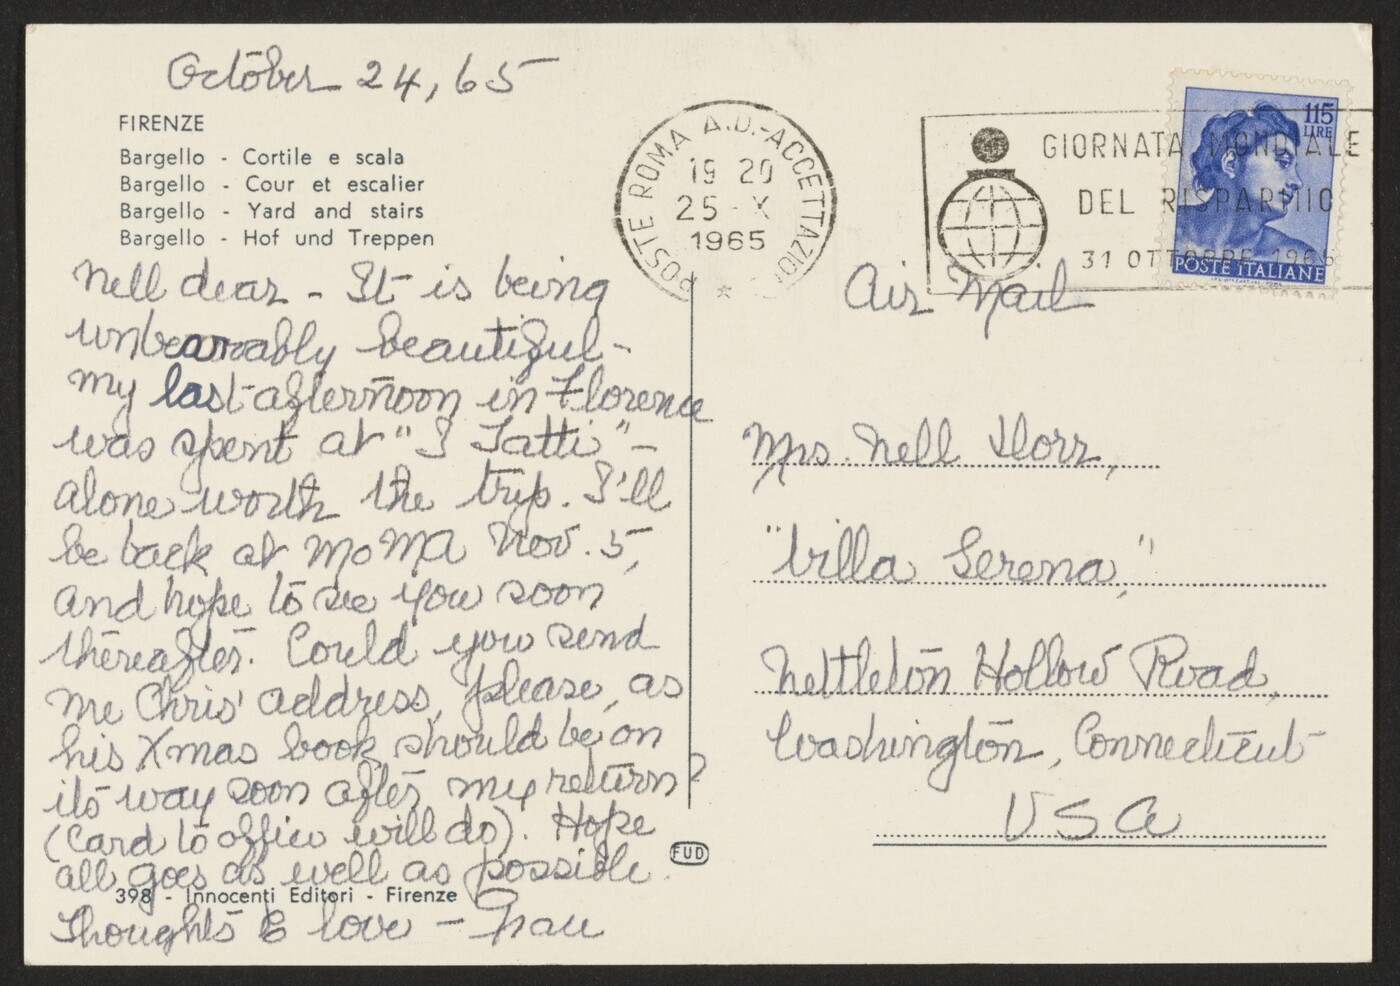 October 24, 65
FIRENZE
Bargello - Cortile e scala
Bargello - Cour et escalier
Bargello - Yard and stairs
Bargello - Hof und Treppen
Nell dear - It is being
unbearably beautiful -
my last afternoon in Florence
was spent at "I Tatti" -
alone worth the trip. I'll
be back at MoMA Nov. 5,
and hope to see you soon
thereafter. Could you send
me Chris' address, please, as
his Xmas book should be on
its way soon after my return?
(Card to office will do). Hope
all goes as well as possible.
398 - Innocenti Editori - Firenze
Thoughts & love -
FUD
POSTE ROMA A.D.-ACCETTAZIO
19 20
25 - X
1965
GIORNATA MONDIALE
DEL RISPARMIO
31 OTTOBRE 1965
115
LIRE
POSTE ITALIANE
Air Mail
Mrs. Nell Dorr,
"Villa Serena,"
Nettleton Hollow Road,
Washington, Connecticut
USA